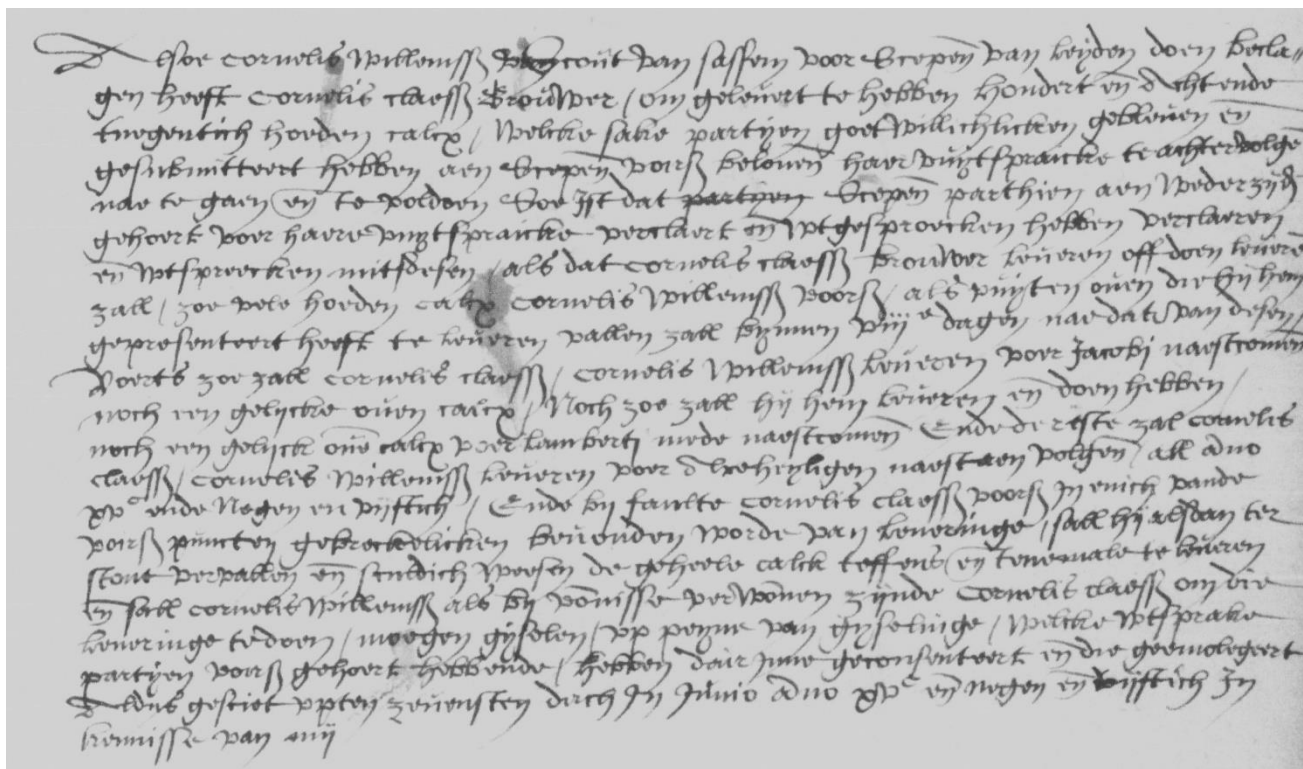 Alsoe Cornelis Willemsß Scout van Sassem voor Scepen̄ van Leyden doen becla-
gen heeft Cornelis Claesß Brouwer / om gelevert te hebben hondert en̄ achtende
tnegentich hoeden calcx / welcke sake partyen goetwillichlicken gebleven en̄
gesubmitteert hebben aen Scepen̄ voirß beloven̄ haer vuytspraicke te achtervolgē
nae te gaen en̄ te voldoen Soe Ist dat partyen Scepen̄ parthien aen wederzyd̄
gehoert voer haere vuytspraicke verclaert en̄ wtgesproecken hebben verclaeren
en̄ wtspreecken mitsdesen / als dat Cornelis Claesß Brouwer leveren off doen leverē
zall / zoe vele hoeden calcx Cornelis Willemsß voorß / als vuyten oven die hy hem
gepresenteert heeft te leveren vallen zall bynnen viij e dagen nae dat van desen
Voerts zoe zall Cornelis Claesß / Cornelis Willemsß leveren voer Jacobi naestcomen̄
noch een gelycke oven calcx / Noch zoe zall hy hem leveren en̄ doen hebben /
noch een gelyck ovē calcx voer Lamberti mede naestcomen̄ Ende de reste zal Cornelis
Claesß / Cornelis Willemsß leveren voer alreheyligen naest aen volgen̄ / all a͞no
xvc ende Negen en vyftich / Ende by faulte Cornelis Claesß voorß In enich vande
voirß puncten gebreckelicken bevonden worde van leveringe / sall hy alsdan ter
stont vervallen en̄ sculdich weesen de geheele calck teffens en̄ tenemale te leveren
en̄ sall Cornelis Willemsß als by vōnisse verwōnen zynde Cornelis Claesß om die
leveringe te doen / moegen gyselen / vp peyne van gyselinge / welcke wtsprake
partyen voirß gehoert hebbende / hebben dair Inne geconsenteert en̄ die geemolegeert
Aldus gesciet vpten zevensten dach In Junio a͞no xvc en̄ negen en̄ vyftich In
kennisse van mij